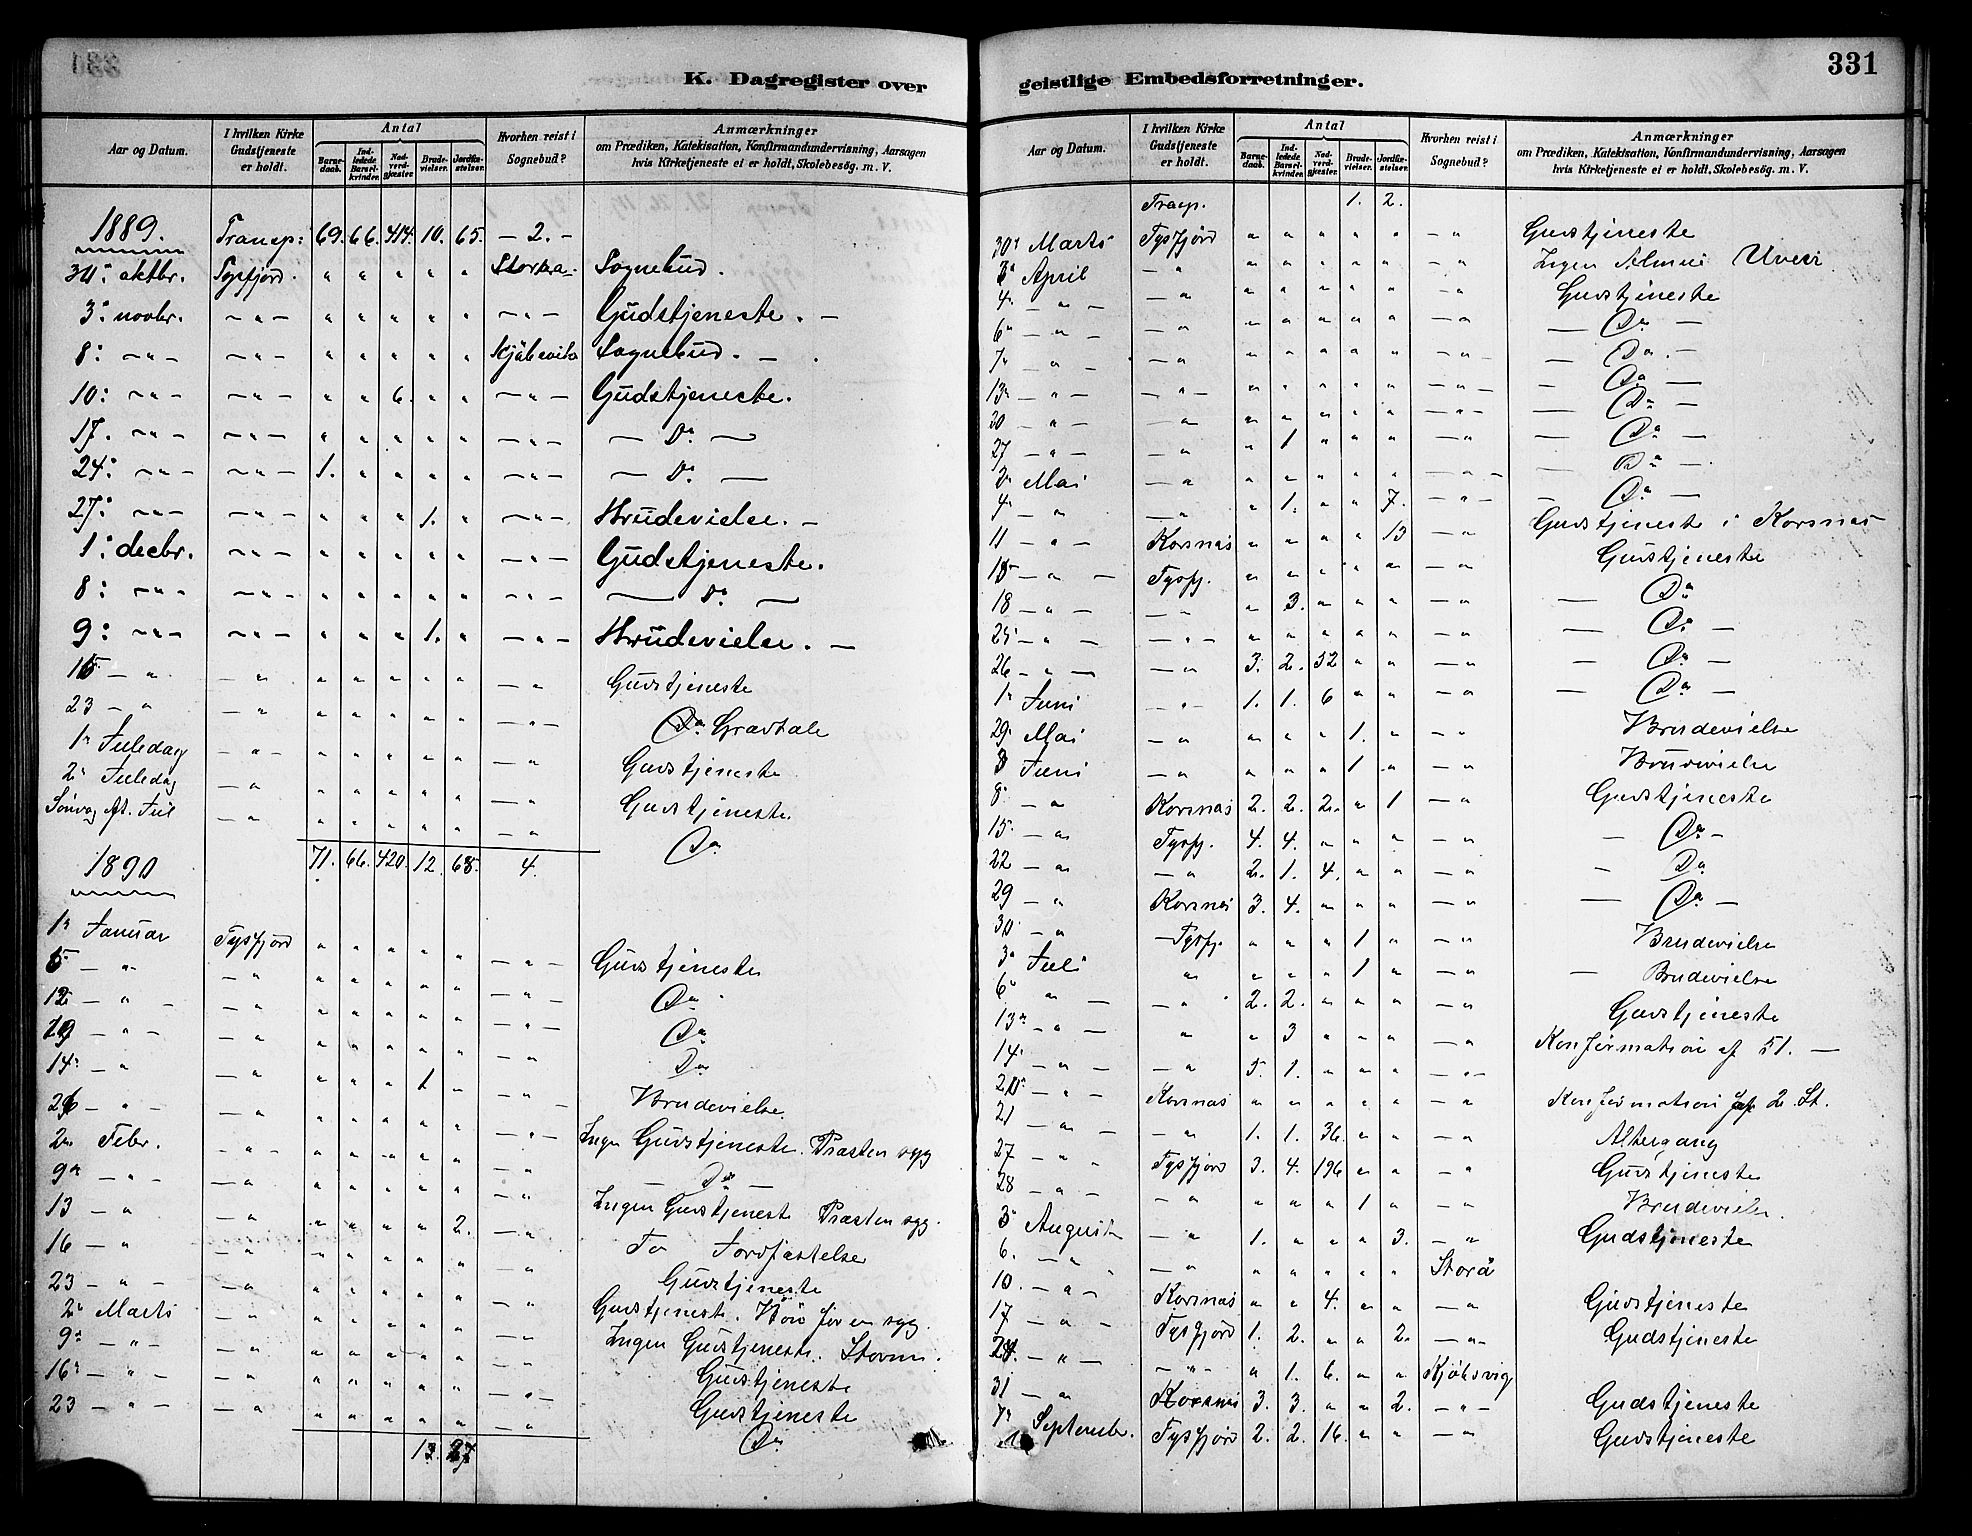 K. Dagregister over
Aar og Datum. I hvilken Kirke Gudstjeneste er holdt. Antal Barnedaab. Indledede Barselkvinder. Nadverdgjester. Brudevielser. Jordfæstelser. Hvorhen reist i Sognebud? Anmærkninger om Prædiken, Katekisation, Konfirmandundervisning, Aarsagen hvis Kirketjeneste ei er holdt, Skolebesög. m. V.
1889. Transp: 69. 66. 414. 10. 65. – 2. –
30: oktbr. Tysfjord. " " " " " Storaa: Sognebud.
3: novbr. – " – " " " " " – " – Gudstjeneste. –
8: – " – – " – " " " " " Kjöbsvik Sognebud. –
10: – " – – " – " " 6. " " – " – Gudstjeneste.
17. – " – – " – " " " " " – " – – Do –
24: – " – – " – 1. " " " " – " – – Do –
27: – " – – " – " " " 1. " – " – Brüdevielse. –
1: decbr. – " – " " " " " – " – Gudstjeneste.
8: – " – – " – " " " " " – " – – Do –
9: – " – – " – " " " 1. " – " – Brüdevielse. –
15 – " – " " " " " " – " Gudstjeneste
23 – " – " " " " " " – " – Do Gravtale
1ste Juledag – " – " " " " " – " Gudstjeneste
2n Juledag – " " " " " " – " Gudstjeneste.
Sönдag ft. Jul – " " " " " " – " Do
71. 66. 420. 12. 68. 4.
1890
1n Januar Tysfjord " " " " " – " – Gudstjeneste
5 – " – " " " " " " – " – Do
12 – " – – " " " " " " – " – Do
19 – " – – " " " " " " – " Do
14 – " – " " " " 1 – – " – Brudevielse.
26 – " – – " " " " " " – " – Ingen Gudstjeneste. Præsten syg
2n Febr. – " – " " " " " – " – Do –
9n – " – – " " " " " " – " Ingen Gudstjeneste Præsten syg.
13 – " – " " " " " 2. – " To Jordfæstelse
16 – " – " " " " " " – " Gudstjeneste
23 – " – – " " " " " " – " Gudstjeneste.
2n Marts – " " " " " " – " Ingen Gudstjeneste. Storm.
9n – " – – " " " " " " – " Gudstjeneste
16n – " – – " " " " " " – " – Gudstjeneste
23 – " – – " " " " " " – " Do
13. 27
geistlige Embedsforretninger. 331
Aar og Datum. I hvilken Kirke Gudstjeneste er holdt. Antal Barnedaab. Indledede Barselkvinder. Nadverdgjester. Brudevielser. Jordfæstelser. Hvorhen reist i Sognebud? Anmærkninger om Prædiken, Katekisation, Konfirmandundervisning, Aarsagen hvis Kirketjeneste ei er holdt, Skolebesög. m. V.
Transp. 1. 2.
30n Marts Tysfjord " " " " " – " Gudstjeneste
3n April – " " " " " " – " Ingen Almue Uveir
4n – " – – " " " " " " – " Gudstjeneste
6n – " – – " " " " " " – " – Do –
7n – " – – " " " " " " – " – – Do. –
13n – " – – " – " " " " " – " – – Do –
20 – " – – " " " " " " – " – – Do –
27 – " – – " " 1 " " " – " – Do –
2n Mai – " " " " " " – " – – Do –
4n – " – " " 1. " " 7. – " – – Do –
11 – " – Korsnæs " " " " 13 – " Gudstjeneste i Korsnæs
15 – " – Tysfj. " " " " " – " Gudstjeneste
18 – " – – " " 3. " " " – " – Do
25 – " – – " – " " " " " – " – Do –
26 – " – – " 3. 2. 32 " " – " – Do –
1n Juni – " – 1. 1. 6 " " – " – Do –
29. Mai – " " " " 1. " – " Brudevielse
3 Juni – " " " " 1 " – " Brudevielse
8n – " Korsnæs 2. 2. 2. " 1 – " Gudstjeneste
15. – " Tysfj. 4. 4. " " " – " – Do –
22 – " – " 2. 1. 4. " " – " – Do
29 – " Korsnæs 3. 4. " " " – " – Do –
30 – " Tysfj. " " " 1 " – " Brudevielse
3n Juli " " " " 1 " – " – Brudevielse
6n " – – " 2. 2. " " " – " Gudstjeneste
13n – " – " " 3 " " " – " Konfirmation af 51. –
14. – " – – " 5 1. " " " – " –
20. – " – Korsnæs " " " " " – " Konfirmation af 2. St.
21 – " – – " 1. 1. 36. " " – " Altergang
27 – " " Tysfjord 3. 4. 196 " " – " Gudstjeneste
28 – " – – " " " " 1 " – " Brudevielse.
3 August – " 1. " " " 3. – " Gudstjeneste
6. – " – – " " " " " " Storå
10. – " – Korsnæs " " 4. " " – " Gudstjeneste
17 – " – Tysfjord 1. 2. " " 2. – " – Gudstjeneste
24. – " – – " – " 1. 6. " " Kjöbsvig
31 – " Korsnæs 3. 3. " " 2. – " – Gudstjeneste
7n September. Tysfjord 2. 2. 16. " " – " Gudstjeneste